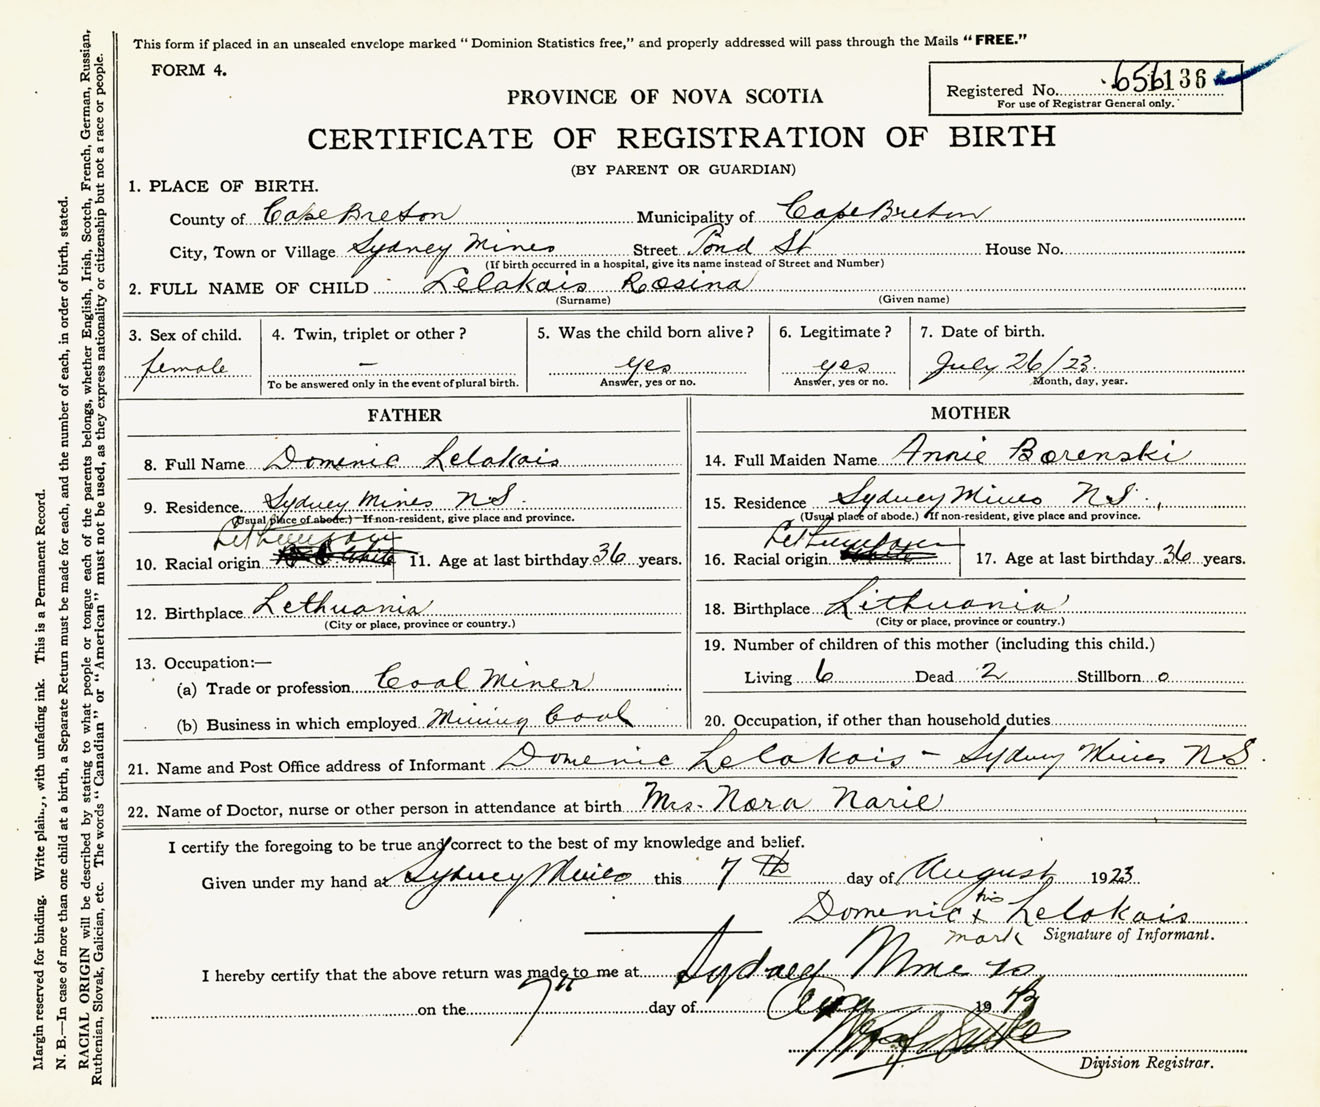 This form if placed in an unsealed envelope marked "Dominion Statistics free," and properly addressed will pass through the Mails "FREE."
FORM 4.
Registered No. 656136
For use of Registrar General only.
PROVINCE OF NOVA SCOTIA
CERTIFICATE OF REGISTRATION OF BIRTH
(BY PARENT OR GUARDIAN)
1. PLACE OF BIRTH.
County of Cape Breton Municipality of Cape Breton
City, Town or Village Sydney Mines Street Pond St House No.
(If birth occurred in a hospital, give its name instead of Street and Number)
2. FULL NAME OF CHILD Lelakais Rosina
(Surname) (Given name)
3. Sex of child. 4. Twin, triplet or other? 5. Was the child born alive? 6. Legitimate? 7. Date of birth.
female — yes yes July 26/23.
To be answered only in the event of plural birth. Answer, yes or no. Answer, yes or no. Month, day, year.
FATHER MOTHER
8. Full Name Domenic Lelakais
9. Residence. Sydney Mines N.S.
(Usual place of abode.) If non-resident, give place and province.
Lethuanian
10. Racial origin 11. Age at last birthday 36 years.
12. Birthplace Lethuania
(City or place, province or country.)
13. Occupation:—
(a) Trade or profession Coal Miner
(b) Business in which employed Mining Coal
14. Full Maiden Name Annie Borenski
15. Residence Sydney Mines N.S.
(Usual place of abode.) If non-resident, give place and province.
Lethuanian
16. Racial origin White 17. Age at last birthday 36 years.
18. Birthplace Lithuania
(City or place, province or country.)
19. Number of children of this mother (including this child.)
Living 6 Dead 2 Stillborn 0
20. Occupation, if other than household duties
21. Name and Post Office address of Informant Domenic Lelakais – Sydney Mines N.S.
22. Name of Doctor, nurse or other person in attendance at birth Mrs. Nora Narie
I certify the foregoing to be true and correct to the best of my knowledge and belief.
Given under my hand at Sydney Mines this 7th day of August 1923
Domenic his x Lelakais
mark Signature of Informant.
I hereby certify that the above return was made to me at Sydney Mines
on the 7th day of Aug 1923
Division Registrar.
Margin reserved for binding. Write plainly, with unfading ink. This is a Permanent Record.
N. B.—In case of more than one child at a birth, a Separate Return must be made for each, and the number of each, in order of birth, stated.
RACIAL ORIGIN will be described by stating to what people or tongue each of the parents belongs, whether English, Irish, Scotch, French, German, Russian,
Ruthenian, Slovak, Galician, etc. The words "Canadian" or "American" must not be used, as they express nationality or citizenship but not a race or people.